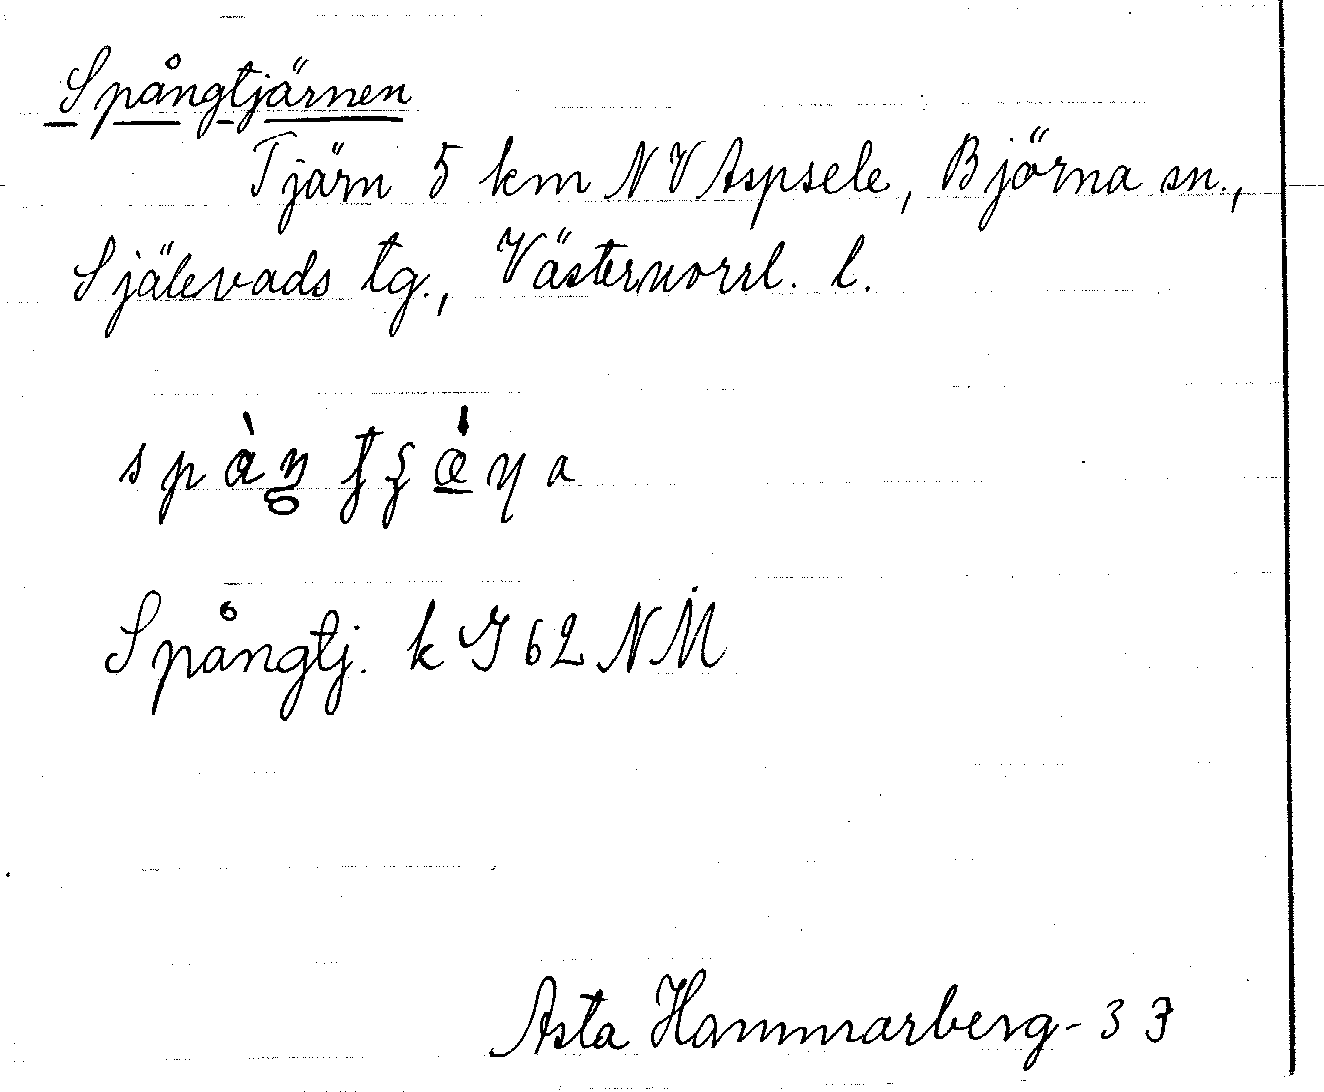 Spångtjärnen
Tjärn 5 km NV Aspsele, Björna sn.,
Själevads tg., Västernorrl. l.
Spångtj. k J 62 NM
Asta Hammarberg - 37